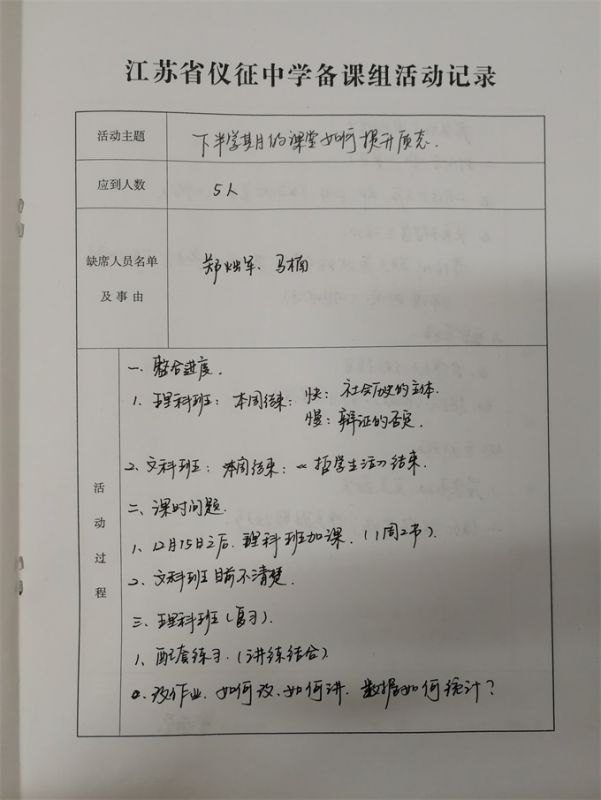 江苏省仪征中学备课组活动记录
活动主题
下半学期的课堂如何提升质态.
应到人数
5人
缺席人员名单
及事由
郑 军、马楠
活动过程
一、整合进度.
1. 理科班: 本周结束: 快: 社会历史的主体.
慢: 辩证的否定.
2、文科班: 本周结束: 《哲学生活》结束.
二、课时问题.
1、12月15日之后. 理科班加课. (1周2节)
2、文科班目前不清楚.
三、理科班(复习).
1、配套练习. (讲练结合)
2. 改作业. 如何改、如何讲. 数据如何统计?